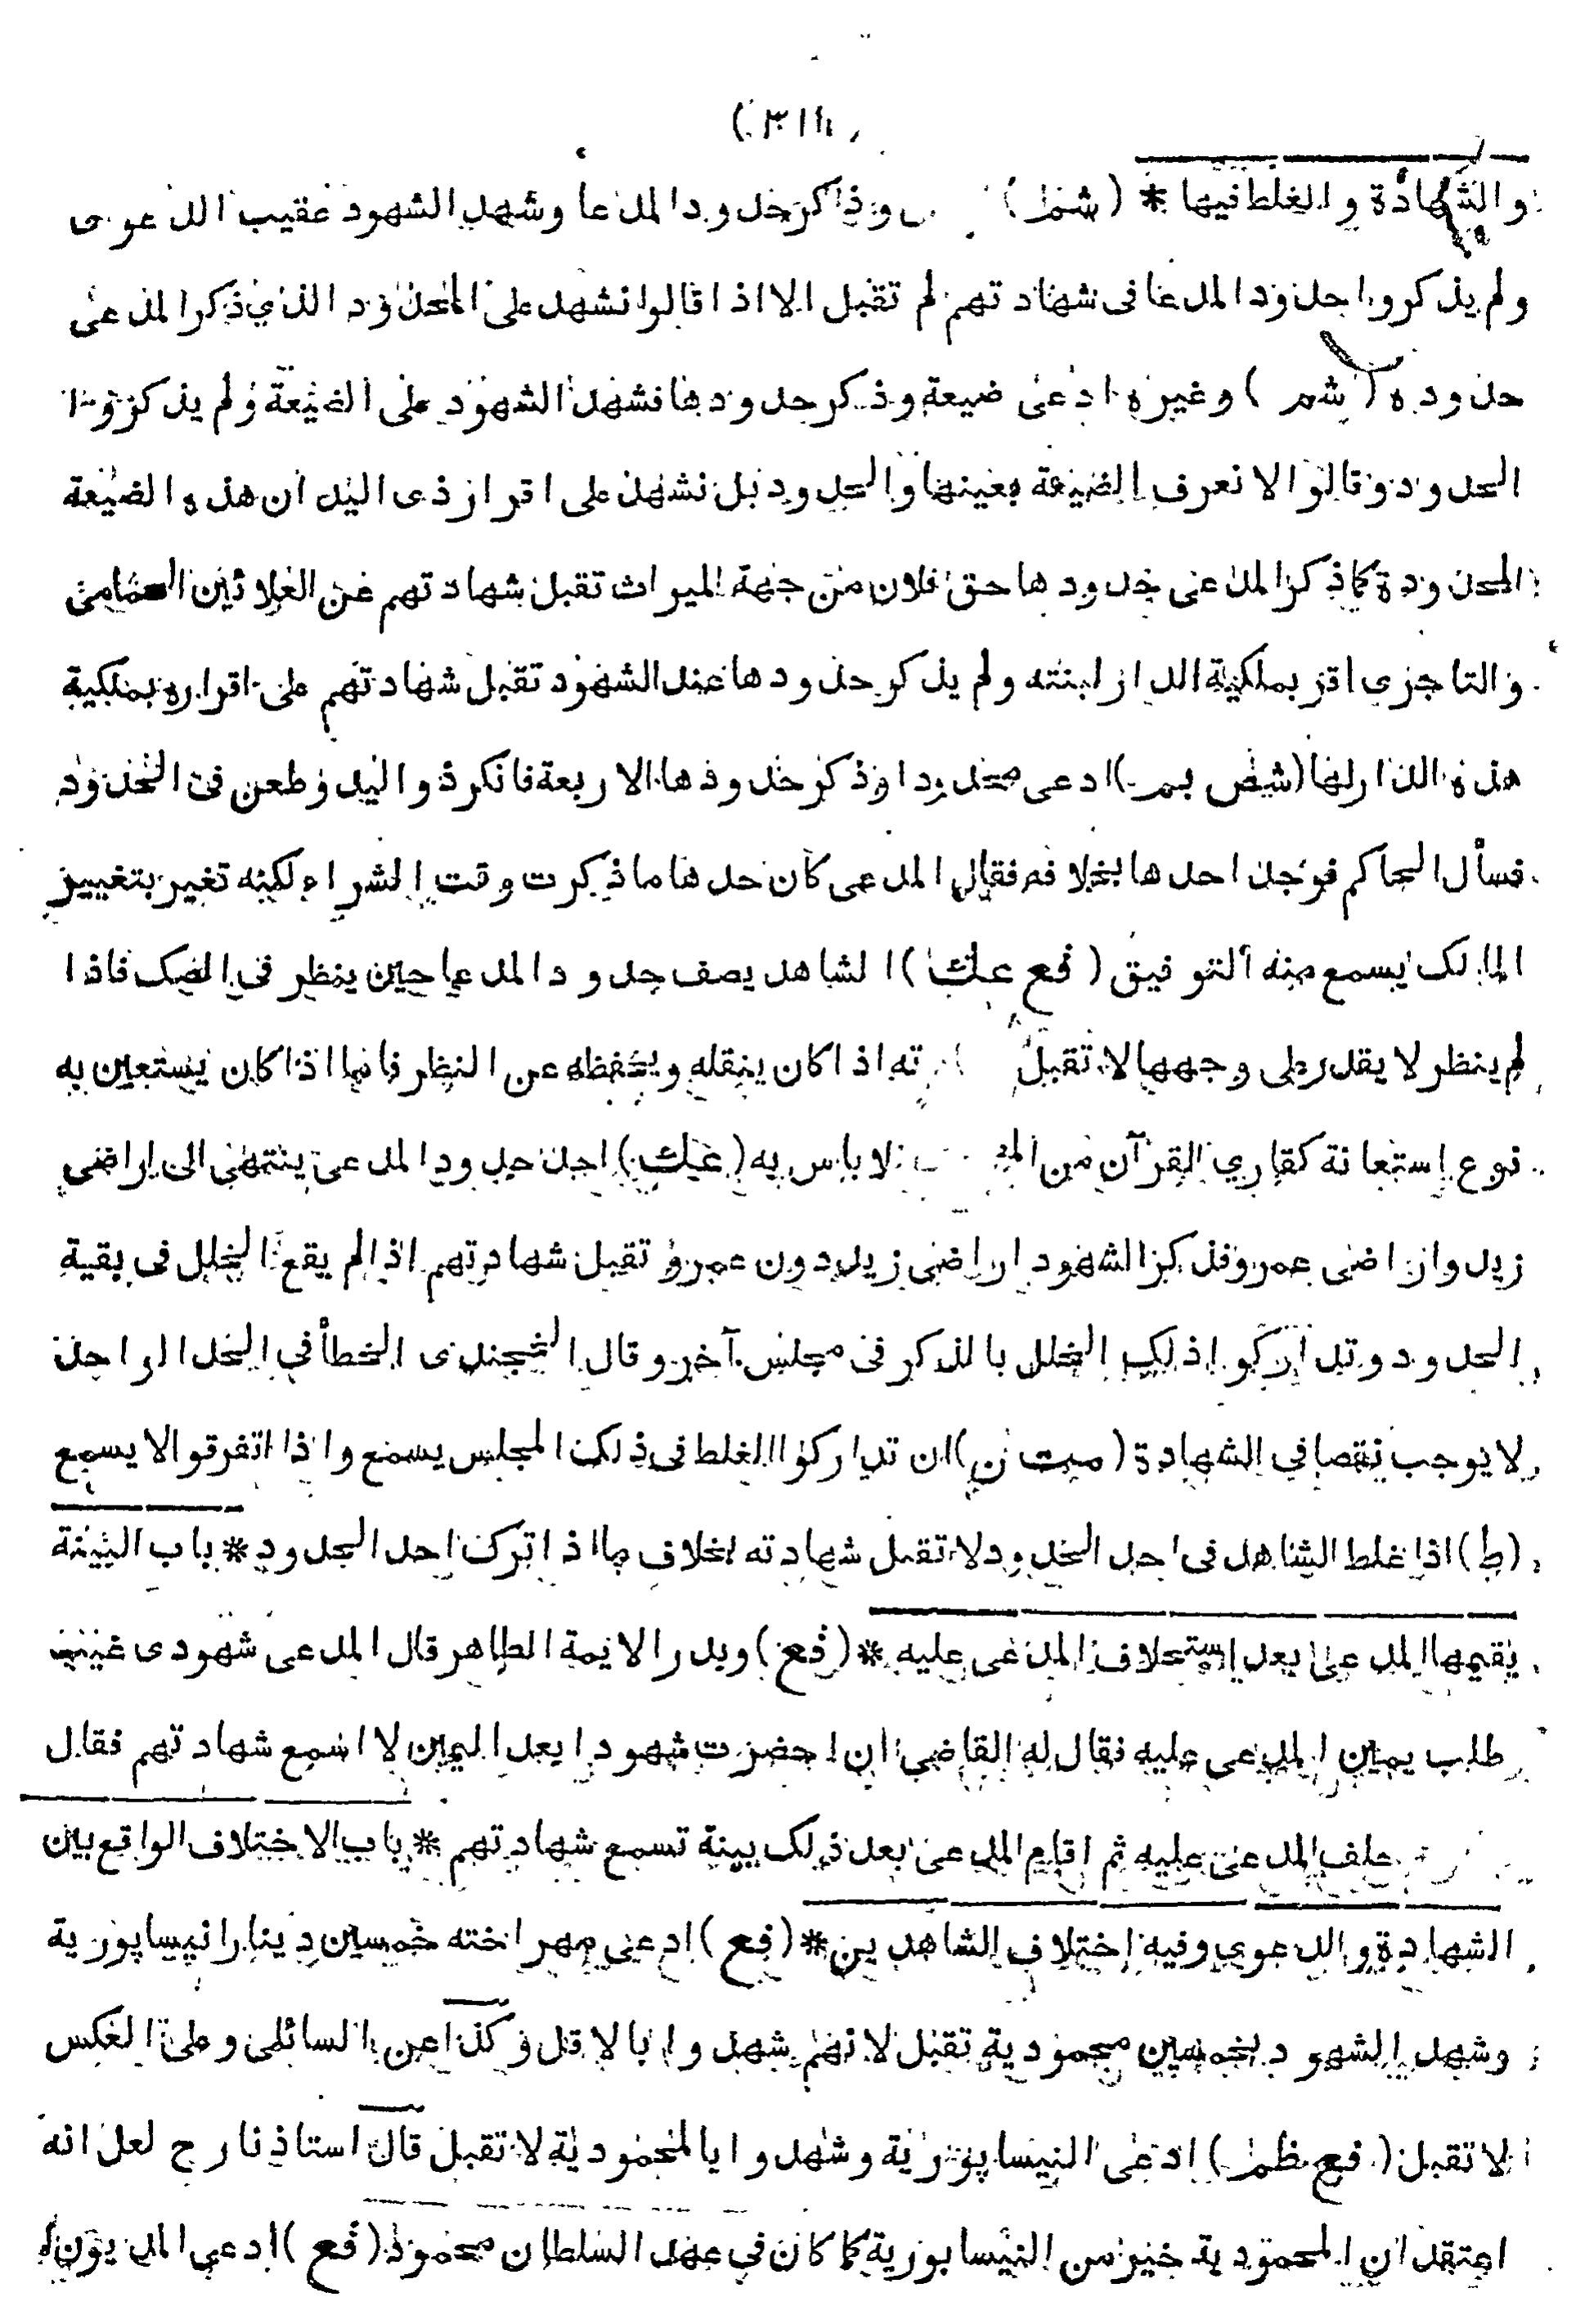 والشهادة والغلط فيها * (شم) وذاكر حدود المدعا وشهد الشهود عقيب الدعوى
ولم يذكروا حدود المدعا فى شهادتهم لم تقبل الا اذا قالوا نشهد على المحدود الذي ذكر المدعى
حدوده (شم) وغيره ادعى ضيعة وذكر حدودها فشهد الشهود على الضيعة ولم يذكروا
الحدود وقالوا لا نعرف الضيعة بعينها والحدود بل نشهد على اقرار ذى اليد ان هذه الضيعة
المحدودة كما ذكر المدعى حدودها حق فلان من جهة الميراث تقبل شهادتهم عن العلائين الحمامى
والتاجرى اقر بملكية الدار لابنته ولم يذكر حدودها عند الشهود تقبل شهادتهم على اقراره بملكية
هذه الدار لها (شض بمـ) ادعى محدودا وذكر حدودها الاربعة فانكر ذو اليد وطعن فى الحدود
فسأل الحاكم فوجد احدها بخلافه فقال المدعى كان حدها ما ذكرت وقت الشراء لكنه تغير بتغيير
المالك يسمع منه التوفيق (فع عك) الشاهد يصف حدود المدعا حين ينظر فى الصك فاذا
لم ينظر لا يقدر على وجهها لا تقبل ته اذا كان ينقله ويحفظه عن النظر فاما اذا كان يستعين به
نوع استعانة كقاري القرآن من لا باس به (عك) احد حدود المدعى ينتهى الى اراضى
زيد واراضى عمرو فذكر الشهود اراضى زيد دون عمرو تقبل شهادتهم اذا لم يقع الخلل فى بقية
الحدود وتداركوا ذلك الخلل بالذكر فى مجلس آخر وقال الخجندى الخطأ في الحد الواحد
لا يوجب نقصا في الشهادة (مت ن) ان تداركوا الغلط فى ذلك المجلس يسمع واذا تفرقوا لا يسمع
(ط) اذا غلط الشاهد فى احد الحدود لا تقبل شهادته بخلاف ما اذا ترك احد الحدود * باب البينة
يقيمها المدعى بعد استحلاف المدعى عليه * (فع) وبدر الايمة الطاهر قال المدعى شهودى غيب
طلب يمين المدعى عليه فقال له القاضى ان احضرت شهودا بعد اليمين لا اسمع شهادتهم فقال
حلف المدعى عليه ثم اقام المدعى بعد ذلك بينة تسمع شهادتهم * باب الاختلاف الواقع بين
الشهادة والدعوى وفيه اختلاف الشاهدين * (فع) ادعى مهر اخته خمسين دينارا نيسابورية
وشهد الشهود بخمسين محمودية تقبل لانهم شهدوا بالاقل وكذا عن السائلى وعلى العكس
لا تقبل (فع ظم) ادعى النيسابورية وشهدوا بالمحمودية لا تقبل قال استاذنا رح لعل انه
اعتقد ان المحمودية خير من النيسابورية كما كان في عهد السلطان محمود (فع) ادعى المديون